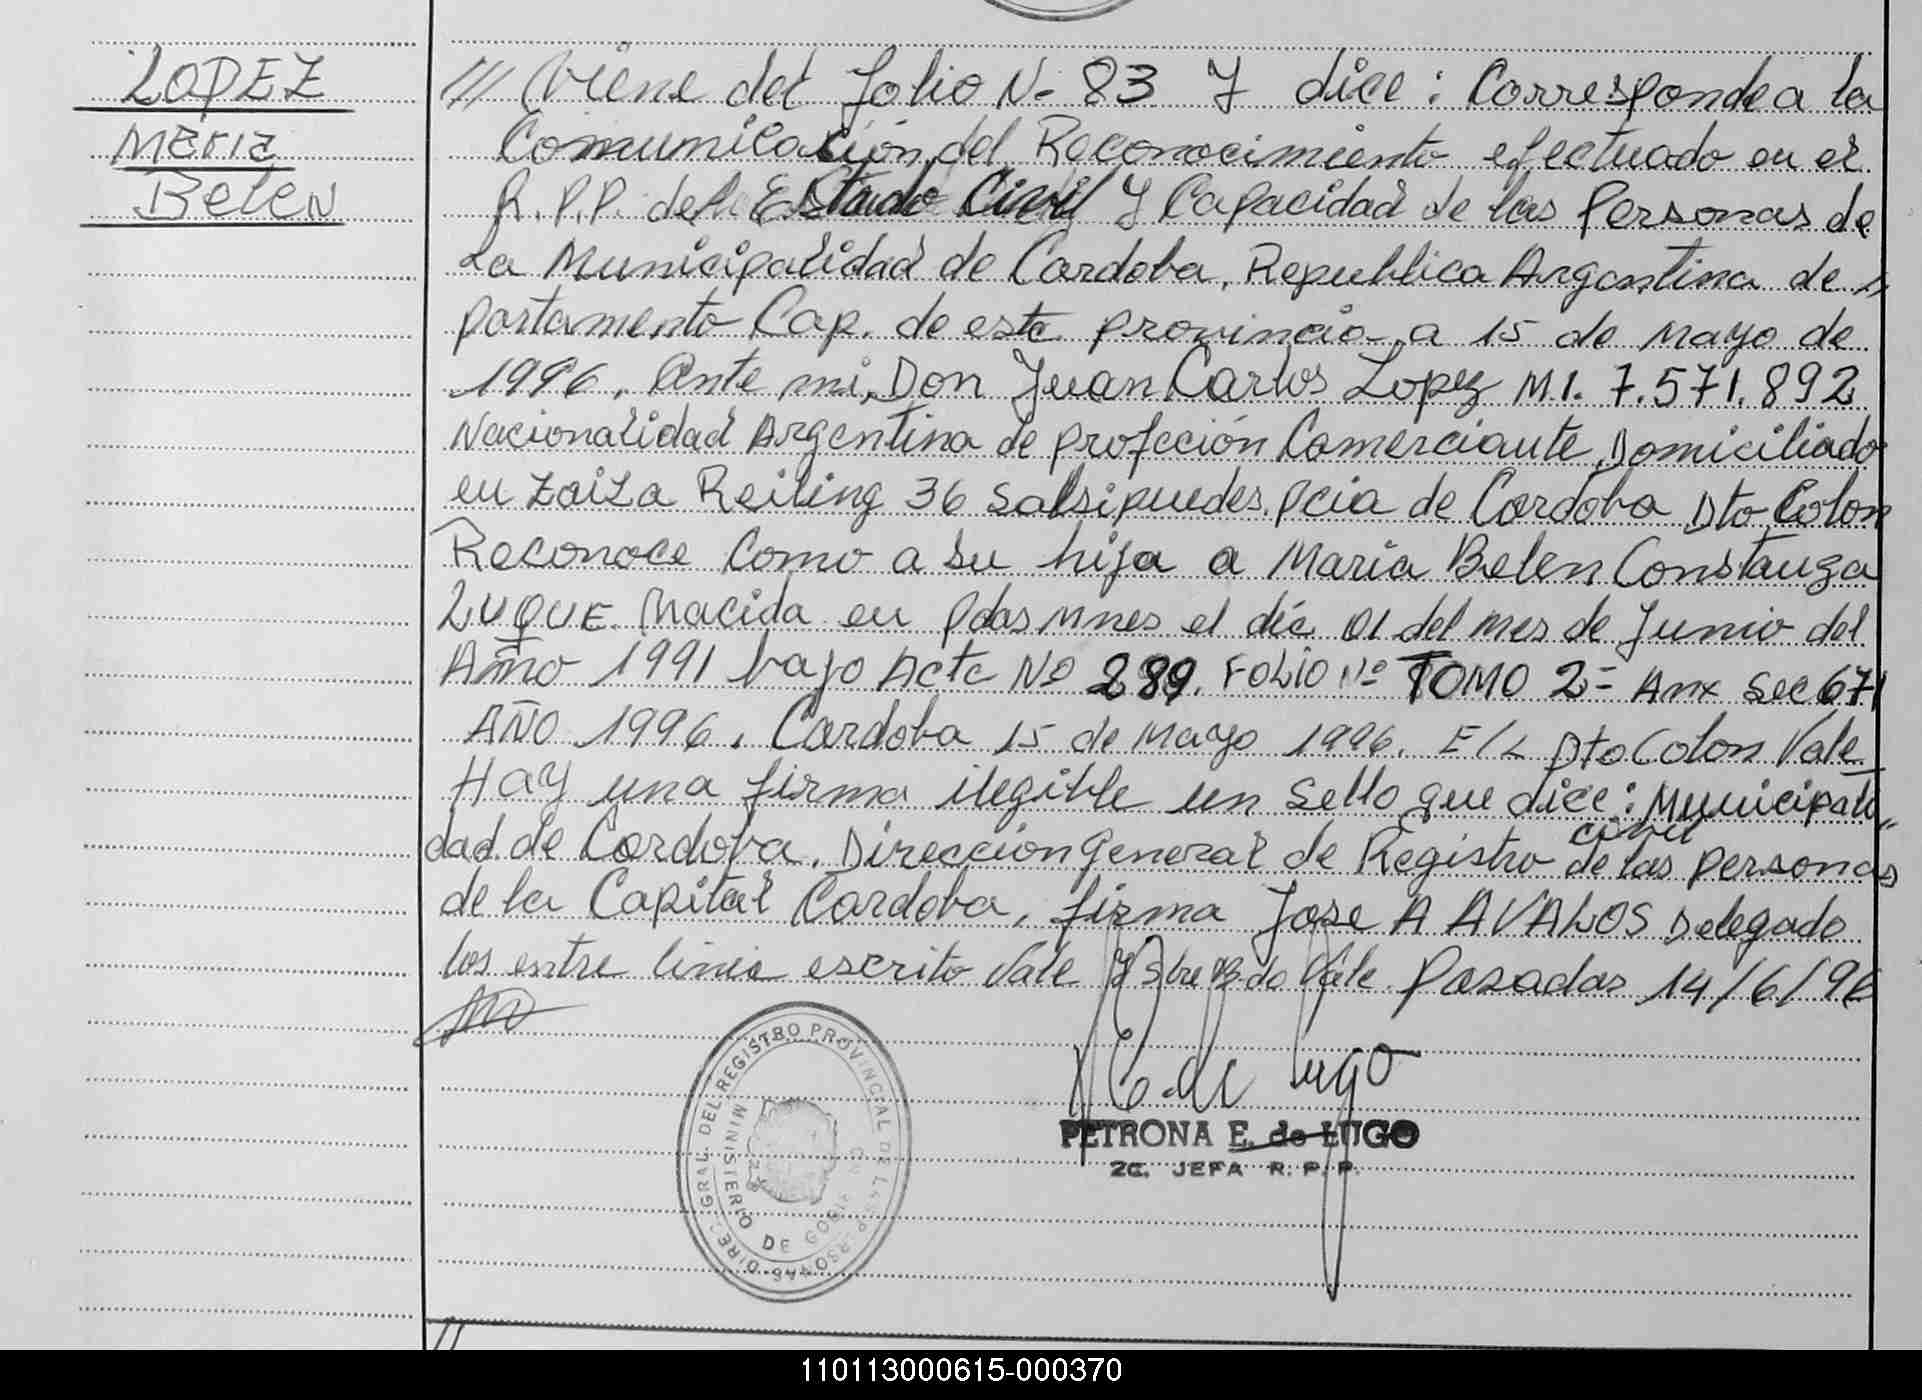 LOPEZ
MARIA
BELEN
/// Viene del Folio N- 83 Y dice: Corresponde a la
Comunicación del Reconocimiento efectuado en el
R.P.P. del Estado Civil y Capacidad de las Personas de
La Municipalidad de Cordoba, Republica Argentina de
partamento Cap. de este provincia a 15 de Mayo de
1996, Ante mi, Don Juan Carlos Lopez M.I. 7.571.892
Nacionalidad Argentina de profeción Comerciante Domiciliado
en Reiling 36 Salsipuedes. Pcia de Cordoba Dto Colon
Reconoce Como a su hija a Maria Belen Constanza
LUQUE. Nacida en el día 01 del mes de Junio del
Año 1991 bajo Acta Nº 289. FOLIO Nº TOMO 2- Anx Sec 671
AÑO 1996. Cordoba 15 de Mayo 1996. E/L Dto Colon Vale
Hay una firma ilegible un Sello que dice: Municipali
civil
dad de Cordoba. Direccion General de Registro de las personas
de la Capital Cordoba, firma Jose A AVALOS Delegado
los entre linea escrito Vale Y Vale. Posadas 14/6/96
E. de Lugo
PETRONA E. de LUGO
2a. JEFA R. P. P.
DIREC. GRAL. DEL REGISTRO PROVINCIAL DE LAS PERSONAS
MINISTERIO DE GOBIERNO
//
110113000615-000370